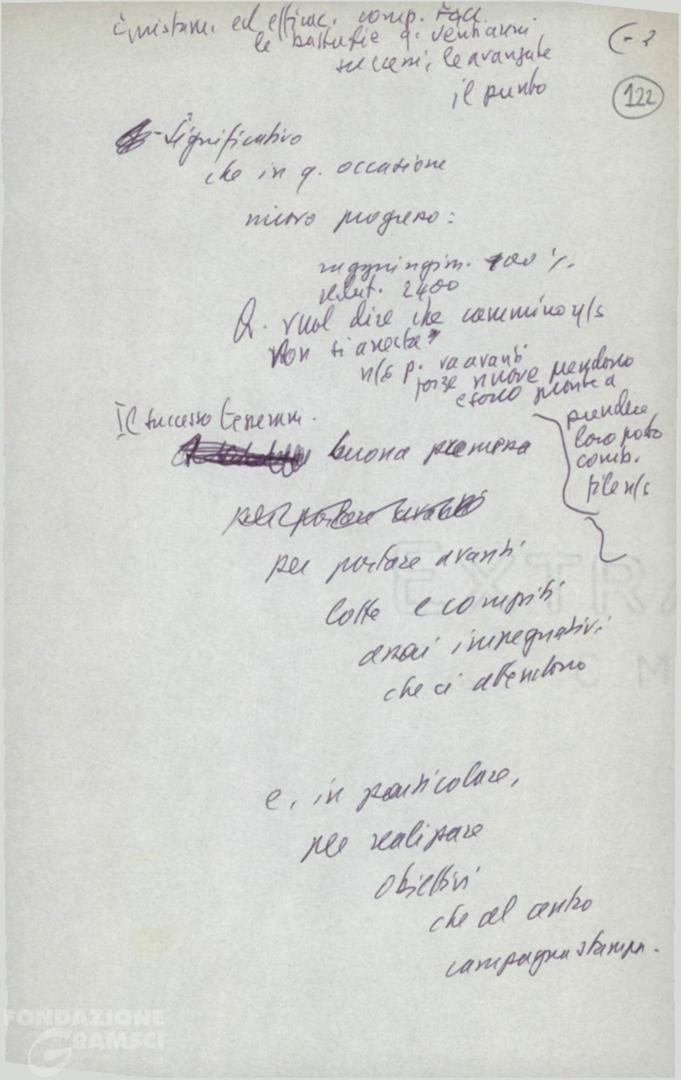 ed effic. comp.
le battaglie q. vent'anni
successi, le avanzate
il punto
(-2
122
- Significativo
che in q. occasione
nuovo progresso:
raggiungim. 100 %
reclut. 2400
Q. vuol dire che cammino n/s
non si arresta
n/s p. va avanti
forze nuove prendono
e sono pronte a
prendere
loro posto
comb.
file n/s
Il successo tesseram.
buona premessa
per portare avanti
per portare avanti
lotte e compiti
assai impegnativi
che ci attendono
e, in particolare,
per realizzare
obiettivi
che al centro
campagna stampa.
EXTRA
FONDAZIONE
GRAMSCI